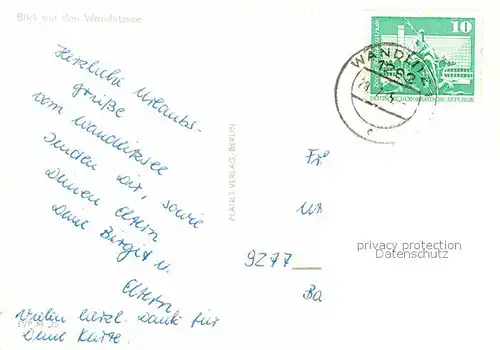 Blick auf den Wandlitzsee
Herzliche Urlaubs-
grüße
vom Wandlitzsee
senden Dir, sowie
Deinen Eltern
Deine Birgit u.
Eltern
Vielen herzl. Dank für
Deine Karte.
EVP M
PLANET-VERLAG, BERLIN
10
DEUTSCHE DEMOKRATISCHE REPUBLIK
WANDLITZ
1292
c
Fr
9277
Ba
privacy protection
Datenschutz